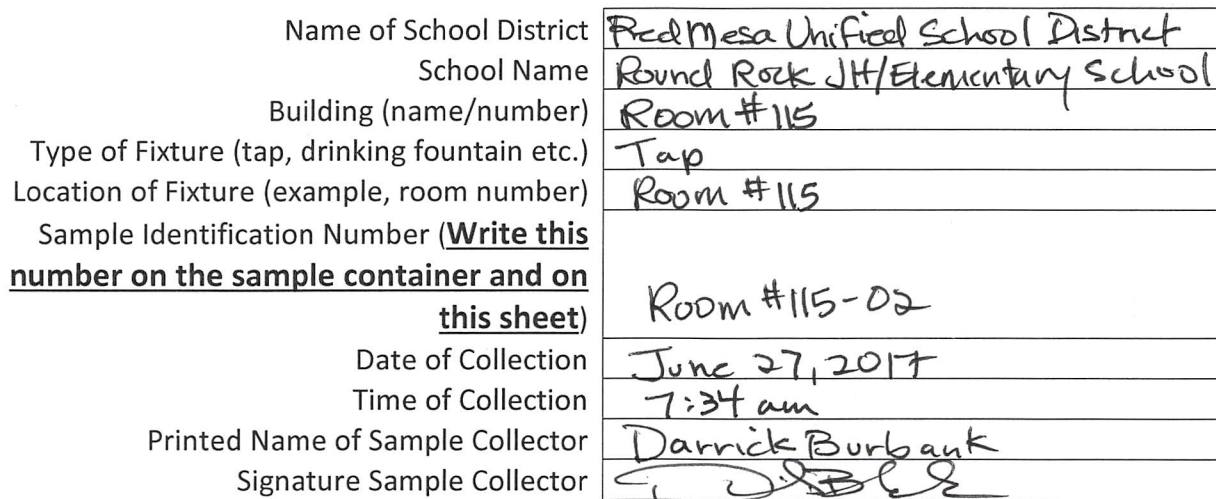 Name of School District Red Mesa Unified School District
School Name Round Rock JH/Elementary School
Building (name/number) Room #115
Type of Fixture (tap, drinking fountain etc.) Tap
Location of Fixture (example, room number) Room #115
Sample Identification Number (Write this
number on the sample container and on
this sheet) Room #115-02
Date of Collection June 27, 2017
Time of Collection 7:34 am
Printed Name of Sample Collector Darrick Burbank
Signature Sample Collector